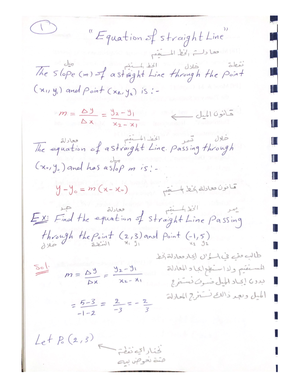 1
"Equation of straight Line"
معادلة الخط المستقيم
ميل الخط المستقيم خلال نقطة
The slope (m) of a straight Line through the point
(x₁, y₁) and point (x₂, y₂) is :-
m = Δy/Δx = y₂-y₁/x₂-x₁ قانون الميل
معادلة الخط المستقيم تمر خلال
The equation of a straight Line passing through
(x₁, y₁) and has a slop m is :-
y - y₁ = m (x - x₁) قانون معادلة الخط المستقيم
Ex: Find the equation of straight Line passing
through the point (2,3) and point (-1,5)
خلال النقطة x₁ y₁ x₂ y₂
Sol:
m = Δy/Δx = y₂-y₁/x₂-x₁
= 5-3/-1-2 = 2/-3 = -2/3
Let P₁ (2,3)